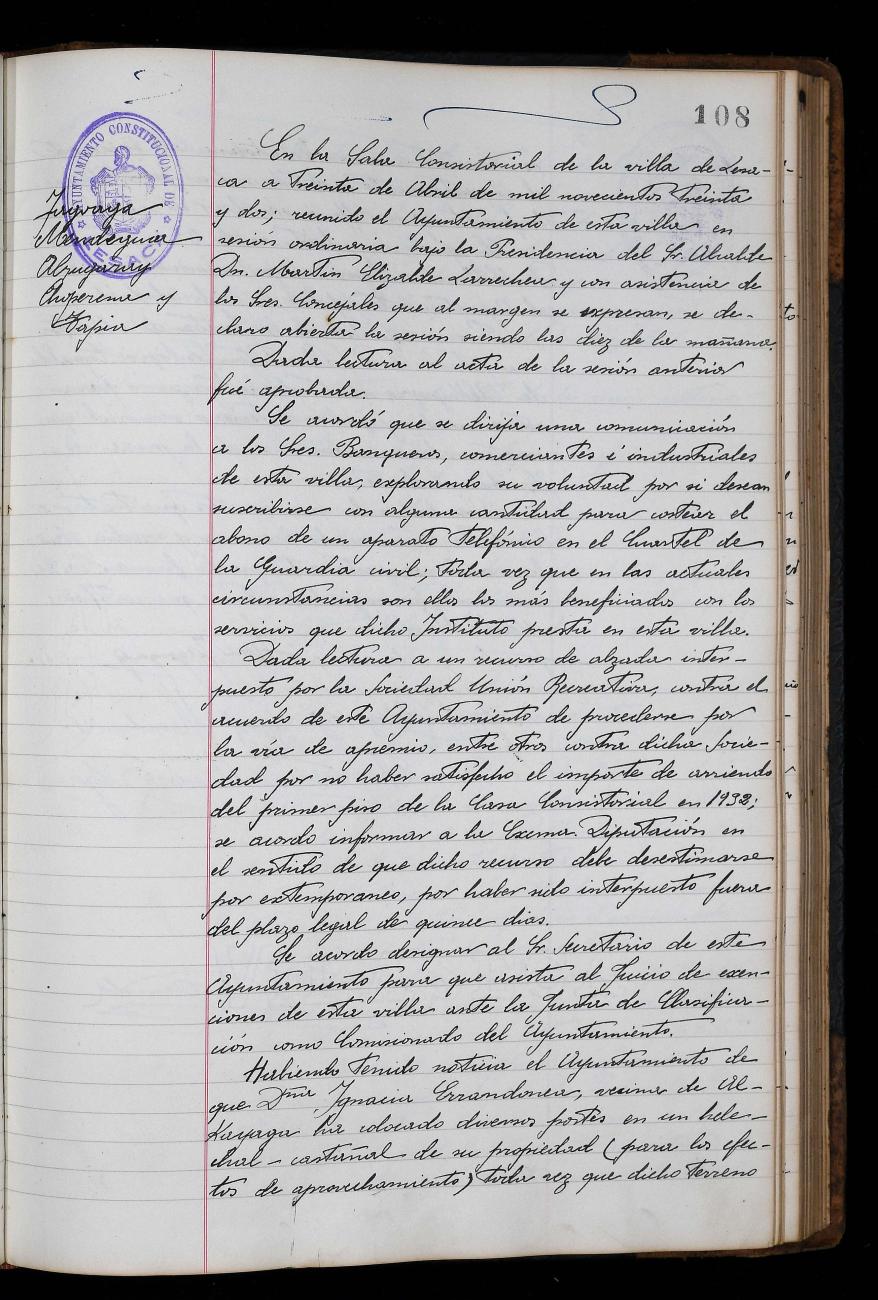 108
AYUNTAMIENTO CONSTITUCIONAL DE
LESACA
Mendeguia
Alzugaray
y
Tapia
En la Sala Consistorial de la villa de Lesa-
ca a treinta de Abril de mil novecientos treinta
y dos; reunido el Ayuntamiento de esta villa en
sesión ordinaria bajo la Presidencia del Sr. Alcalde
Dn. Martin Elizalde Larrechea y con asistencia de
los Sres. Concejales que al margen se expresan, se de-
claro abierta la sesión siendo las diez de la mañana.
Dada lectura al acta de la sesión anterior
fué aprobada.
Se acordó que se dirija una comunicación
a los Sres. Banqueros, comerciantes é industriales
de esta villa, explorando su voluntad por si desean
suscribirse con alguna cantidad para costear el
abono de un aparato telefónio en el Cuartel de
la Guardia civil; toda vez que en las actuales
circunstancias son ellos los más beneficiados con los
servicios que dicho Instituto presta en esta villa.
Dada lectura a un recurso de alzada inter-
puesto por la Sociedad Unión Recreativa, contra el
acuerdo de este Ayuntamiento de procederse por
la vía de apremio, entre otros contra dicha Socie-
dad por no haber satisfecho el importe de arriendo
del primer piso de la Casa Consistorial en 1932;
se acordo informar a la Excma. Diputación en
el sentido de que dicho recurso debe desestimarse
por extemporaneo, por haber sido interpuesto fuera
del plazo legal de quince dias.
Se acordo designar al Sr. Secretario de este
Ayuntamiento para que asista al Juicio de exen-
ciones de esta villa ante la Junta de Clasifica-
ción como Comisionado del Ayuntamiento.
Habiendo tenido noticia el Ayuntamiento de
que Dña Ignacia Errandonea, vecina de Al-
kayaga ha colocado diversos postes en un hele-
chal-castañal de su propiedad (para los efec-
tos de aprovechamiento) toda vez que dicho terreno